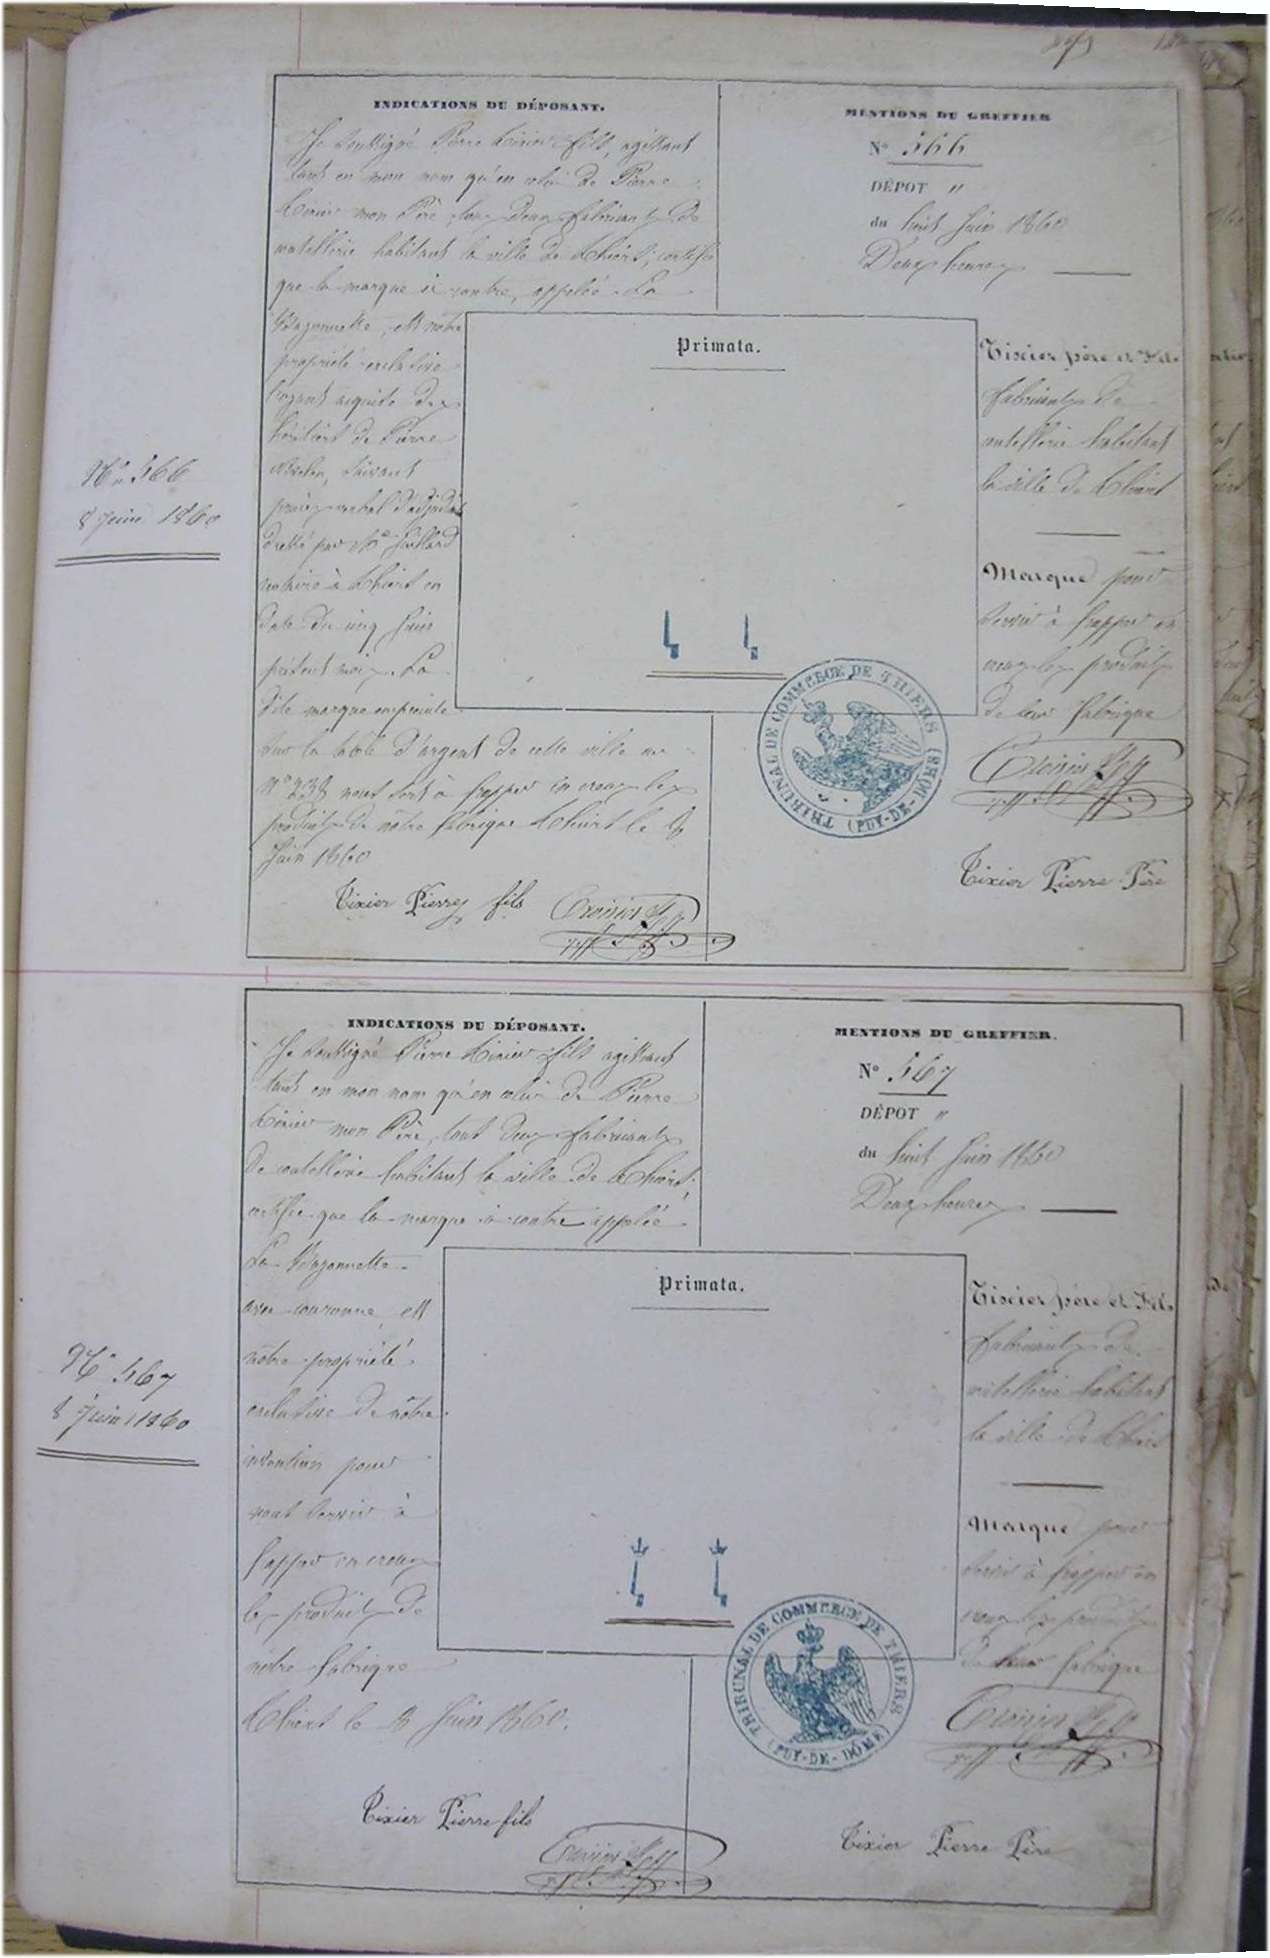 INDICATIONS DU DÉPOSANT.
Je soussigné Pierre Tixier fils, agissant
tant en mon nom qu'en celui de Pierre
Tixier mon Père, tous deux fabricants de
coutellerie habitant la ville de Thiers, certifie
que la marque ci contre, appelée La
Bayonnette, est notre
propriété exclusive
l'ayant acquise des
héritiers de Pierre
suivant
procès verbal d'adjudon
dressé par Me
notaire à Thiers en
date du cinq Juin
présent mois. La
dite marque empreinte
sur la table d'argent de cette ville au
No 238 nous sert à frapper en creux les
produits de notre fabrique Thiers le 8
Juin 1860
Tixier Pierre fils
MENTIONS DU GREFFIER
No 566
DÉPOT "
du huit Juin 1860
Deux heures
Primata.
Tixier père et Fils
fabricants de
coutellerie habitant
la ville de Thiers
Marque pour
servir à frapper en
creux les produits
de leur fabrique
Tixier Pierre Père
TRIBUNAL DE COMMERCE DE THIERS (PUY-DE-DÔME)
No 566
8 Juin 1860
INDICATIONS DU DÉPOSANT.
Je soussigné Pierre Tixier fils agissant
tant en mon nom qu'en celui de Pierre
Tixier mon Père, tous deux fabricants
de coutellerie habitant la ville de Thiers,
certifie que la marque ci contre appelée
La Bayonnette
avec couronne, est
notre propriété
exclusive de notre
invention pour
nous servir à
frapper en creux
les produits de
notre fabrique
Thiers le 8 Juin 1860.
Tixier Pierre fils
MENTIONS DU GREFFIER.
No 567
DÉPOT "
du huit Juin 1860
Deux heures
Primata.
Tixier père et Fils
fabricants de
coutellerie habitant
la ville de Thiers
Marque pour
servir à frapper en
creux les produits
de leur fabrique
Tixier Pierre Père
TRIBUNAL DE COMMERCE DE THIERS (PUY-DE-DÔME)
No 567
8 Juin 1860